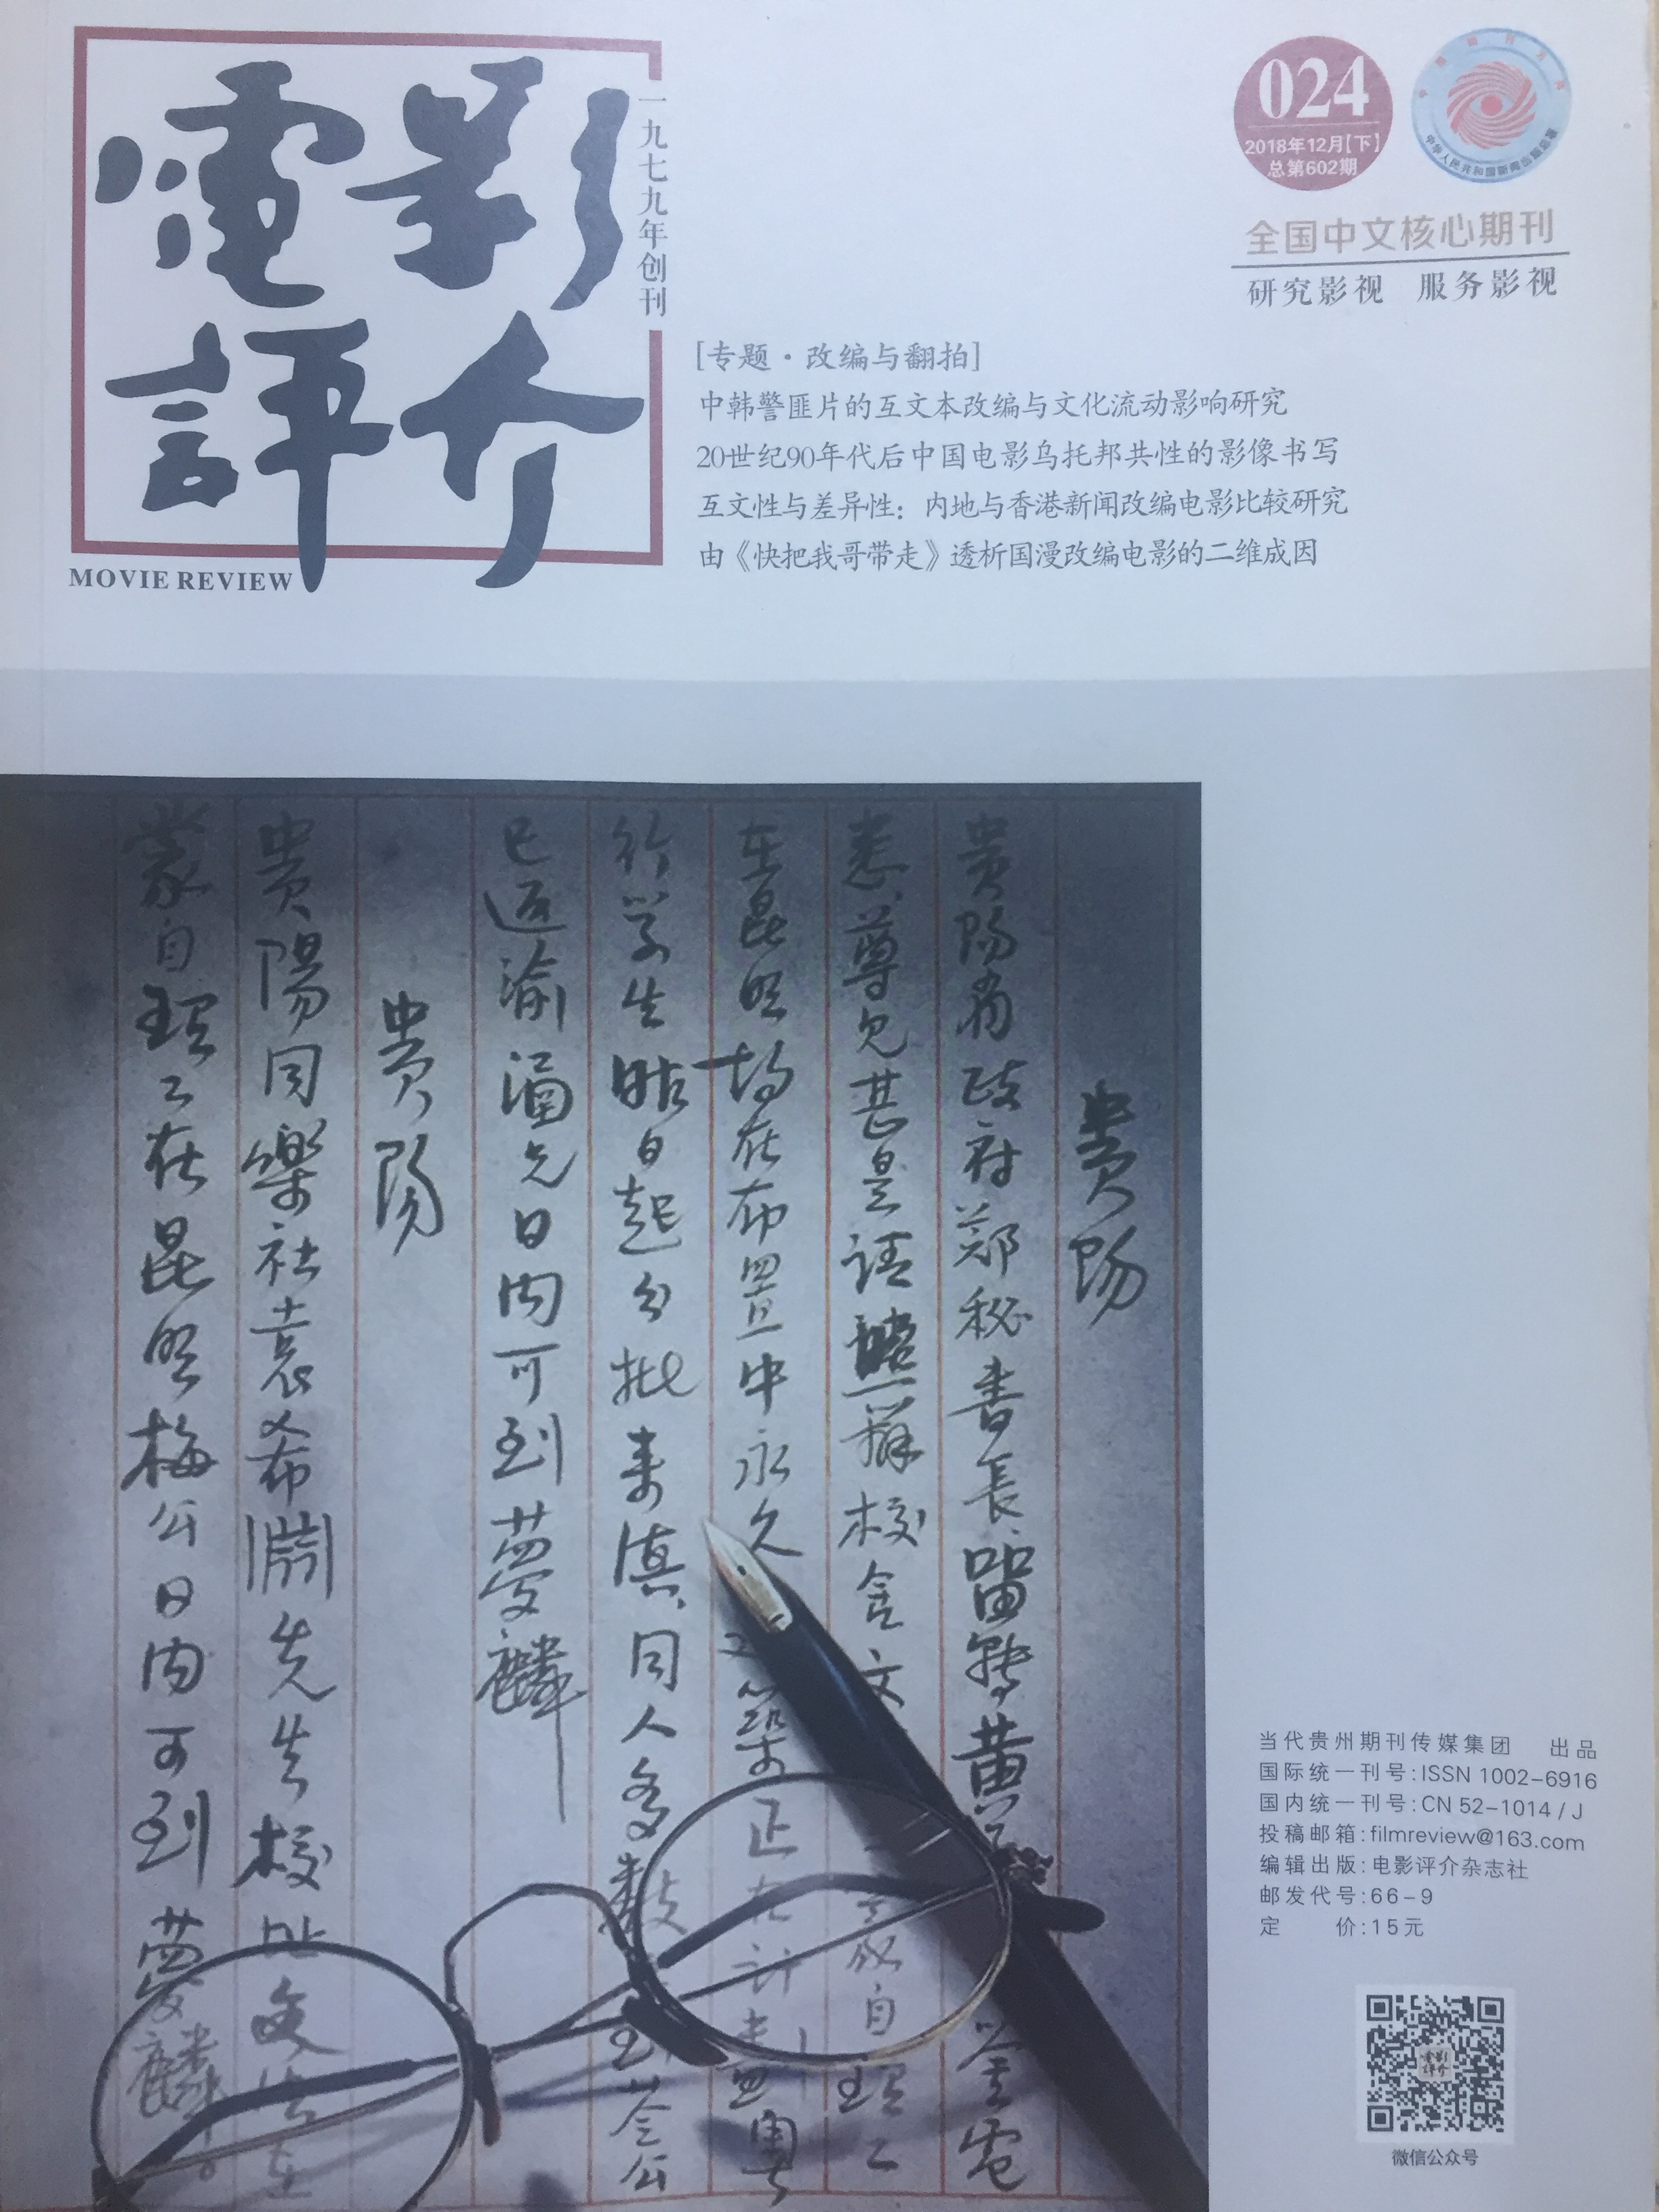 電影
評介
一九七九年创刊
MOVIE REVIEW
024
2018年12月【下】
总第602期
中华人民共和国新闻出版总署
全国中文核心期刊
研究影视 服务影视
[专题·改编与翻拍]
中韩警匪片的互文本改编与文化流动影响研究
20世纪90年代后中国电影乌托邦共性的影像书写
互文性与差异性：内地与香港新闻改编电影比较研究
由《快把我哥带走》透析国漫改编电影的二维成因
貴阳
貴阳省政府郑秘书長
悉尊兄甚是话 校舍文 蒙自
在昆明均在布置中永久 築 正在计
行学生昨日起分批来滇同人多数
已返渝 兄日内可到 夢麟
貴阳
貴陽同樂社袁希 先生 校址
蒙自 在昆明梅公日内可到 夢麟
当代贵州期刊传媒集团 出品
国际统一刊号:ISSN 1002-6916
国内统一刊号:CN 52-1014 / J
投稿邮箱:filmreview@163.com
编辑出版:电影评介杂志社
邮发代号:66-9
定 价:15元
電影
評介
微信公众号